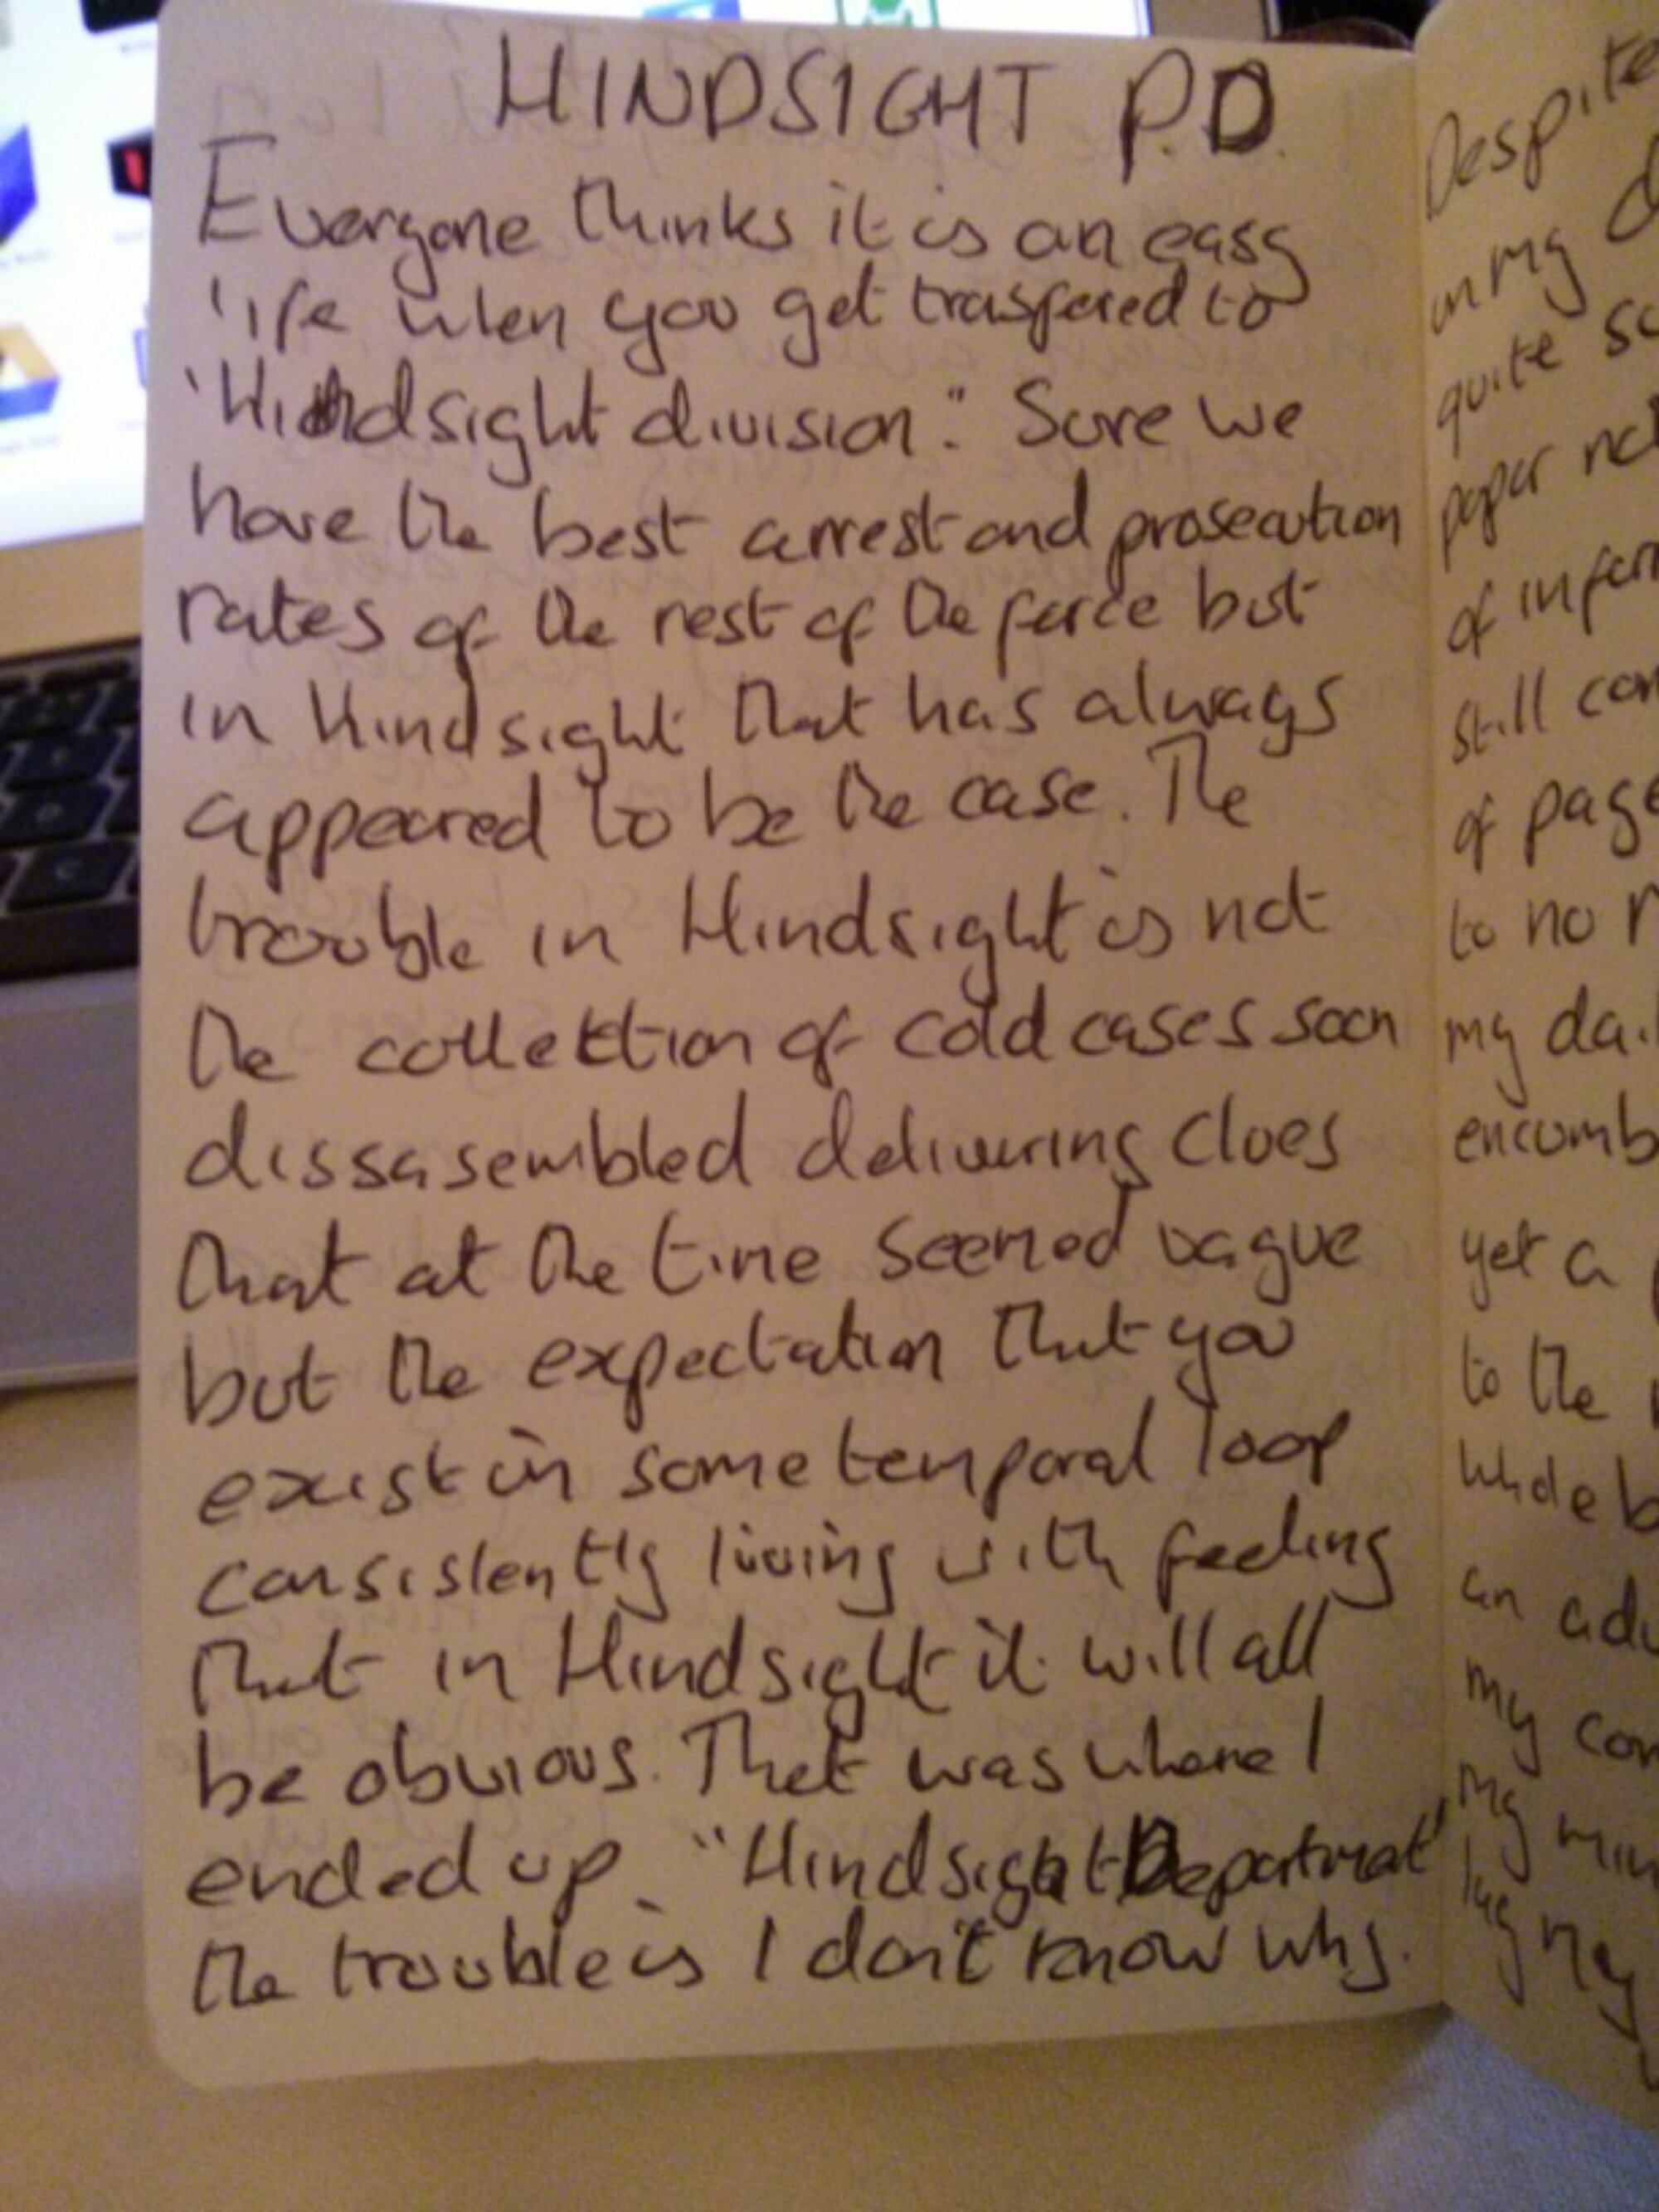 HINDSIGHT P.D.
Everyone thinks it is an easy
life when you get trasfered to
"Hindsight division". Sure we
have the best arrest and prosecution
rates of the rest of the force but
in Hindsight that has always
appeared to be the case. The
trouble in Hindsight is not
the collection of cold cases soon
dissasembled delivering clues
that at the time seemed vague
but the expectation that you
exist in some temporal loop
consistently living with feeling
that in Hindsight it will all
be obvious. That was where I
ended up. "Hindsight Department"
the trouble is I don't know why.
Despite
in my
quite
paper
of
still
of
to no
my
yet a
to the
an
my
my
my